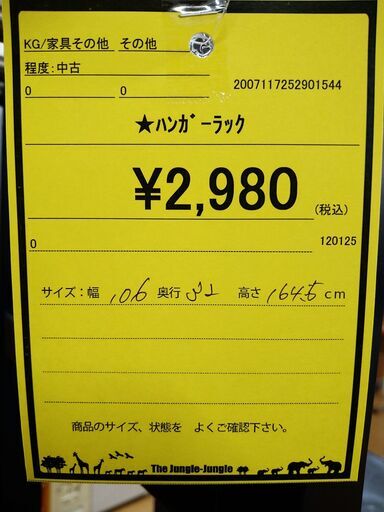 KG/家具その他 その他
程度:中古
0 0 2007117252901544
★ﾊﾝｶﾞｰラック
¥2,980 (税込)
0 120125
サイズ:幅 106 奥行 32 高さ 164.5 cm
商品のサイズ、状態を よくご確認下さい。
The Jungle-Jungle